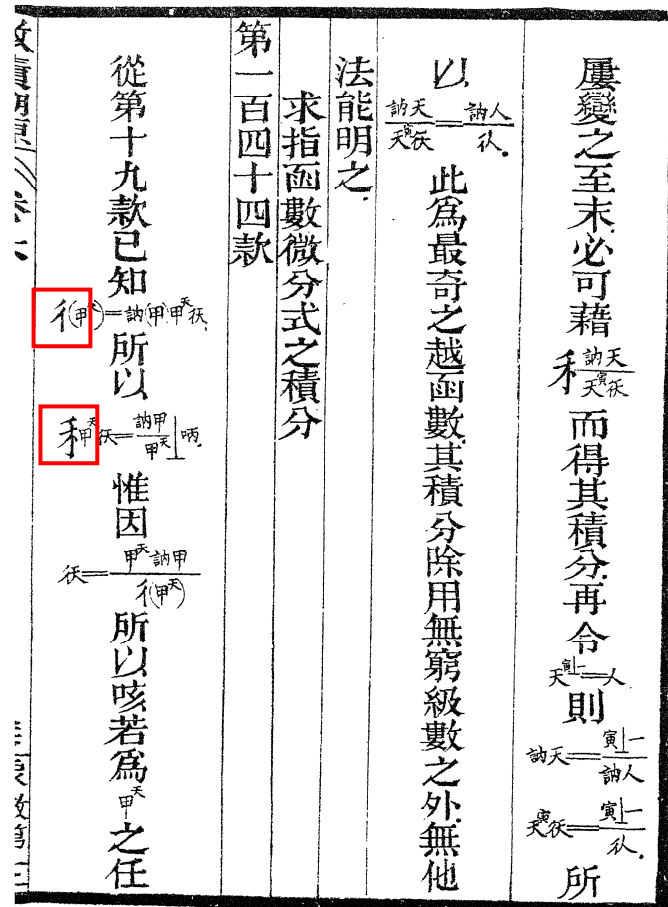 屢變之至末必可藉禾訥天/天寅彳天而得其積分再令天寅⊥一=人則訥天=寅⊥一/訥人 天寅彳天=寅⊥一/彳人所
以訥天/天寅彳天=訥人/彳人此爲最奇之越函數其積分除用無窮級數之外無他
法能明之
求指函數微分式之積分
第一百四十四款
從第十九款已知彳(甲天)=訥(甲)甲天彳天所以禾甲天彳天=訥甲/甲天⊥㕫惟因彳天=甲天訥甲/彳(甲天)所以咳若爲甲天之任